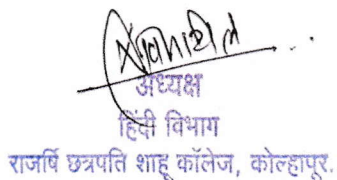 अध्यक्ष
हिंदी विभाग
राजर्षि छत्रपति शाहू कॉलेज, कोल्हापूर.